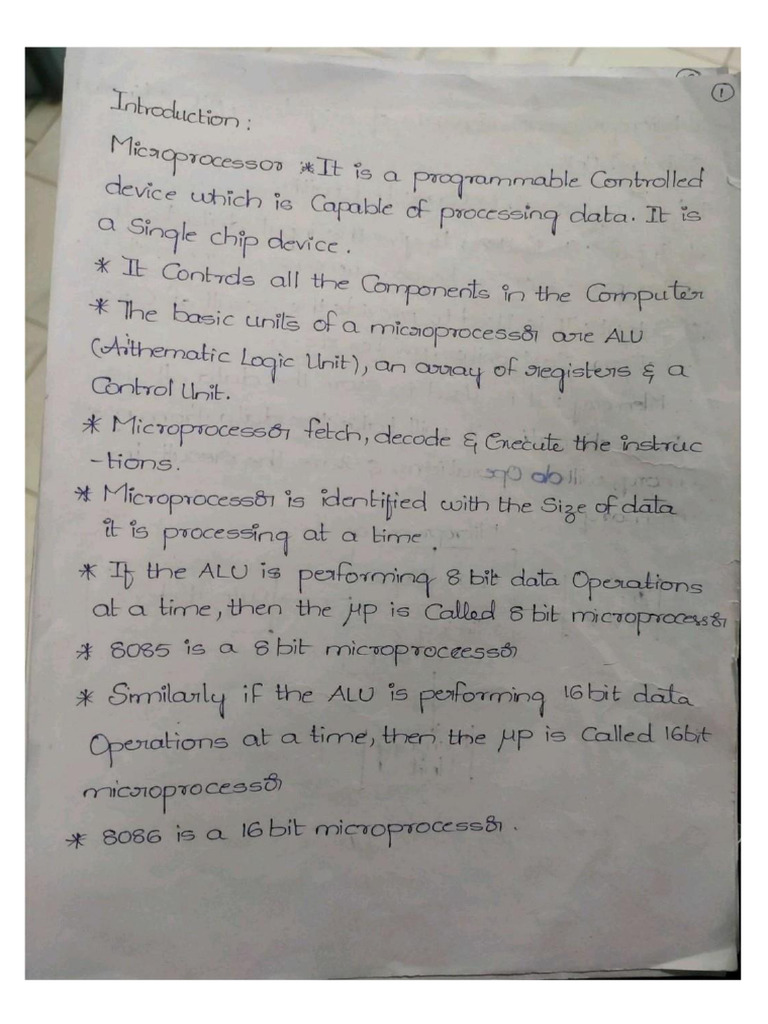 1
Introduction:
Microprocessor *It is a programmable Controlled
device which is Capable of processing data. It is
a Single chip device.
* It Controls all the Components in the Computer
* The basic units of a microprocessor are ALU
(Arithematic Logic Unit), an array of registers & a
Control Unit.
* Microprocessor fetch, decode & Execute the instruc
-tions.
* Microprocessor is identified with the Size of data
it is processing at a time.
* If the ALU is performing 8 bit data Operations
at a time, then the μp is Called 8 bit microprocessor
* 8085 is a 8 bit microproceessor
* Similarly if the ALU is performing 16 bit data
Operations at a time, then the μp is Called 16bit
microprocessor
* 8086 is a 16 bit microprocessor.